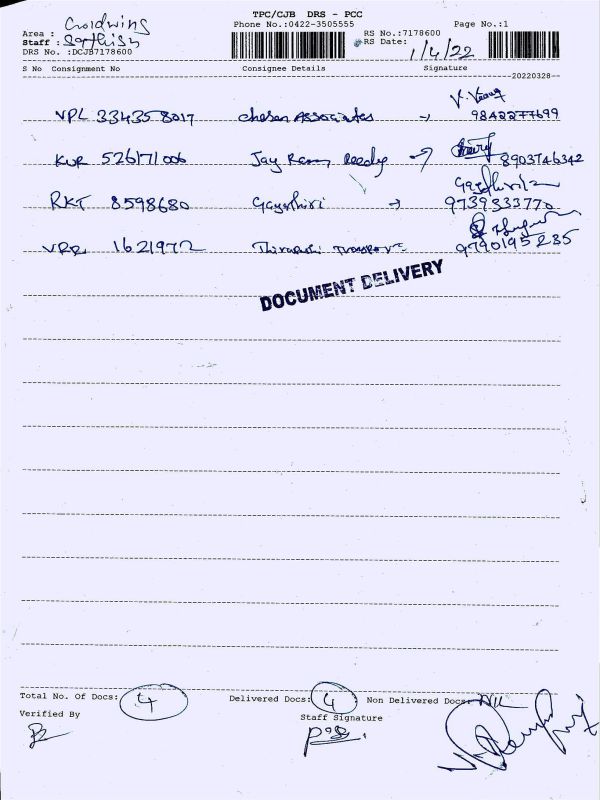 TPC/CJB DRS - PCC
Area : Goldwins Phone No.:0422-3505555 Page No.:1
Staff : Sathish RS No.:7178600
DRS No. :DCJB7178600 RS Date: 1/4/22
S No Consignment No Consignee Details Signature
20220328
VPL 334358017 Chesan Associates 9842277699
KUR 526171006 Jay Ram Reedy 8903746342
RKT 8598680 Gayathiri 9739333770
VRR 1621972 9790195235
DOCUMENT DELIVERY
Total No. Of Docs: 4 Delivered Docs: 4 Non Delivered Docs: NIL
Verified By Staff Signature